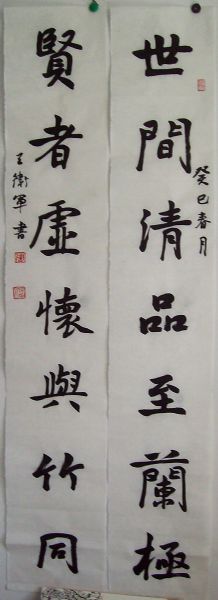 世間清品至蘭極
癸巳春月
賢者虛懷與竹同
王衛軍書